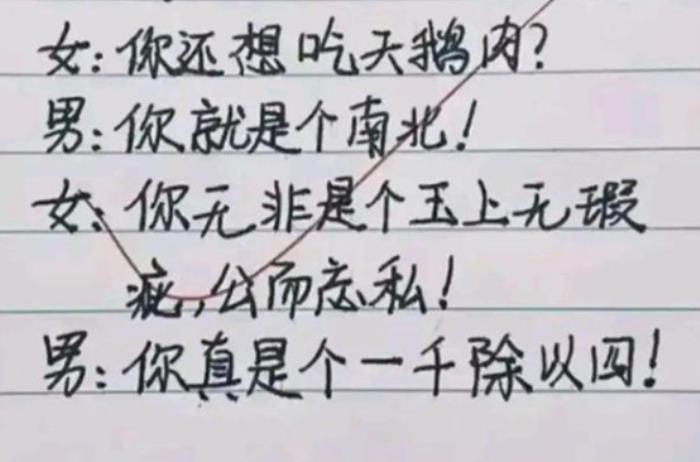 女：你还想吃天鹅肉？
男：你就是个南北！
女：你无非是个玉上无瑕
疵，公而忘私！
男：你真是个一千除以四！